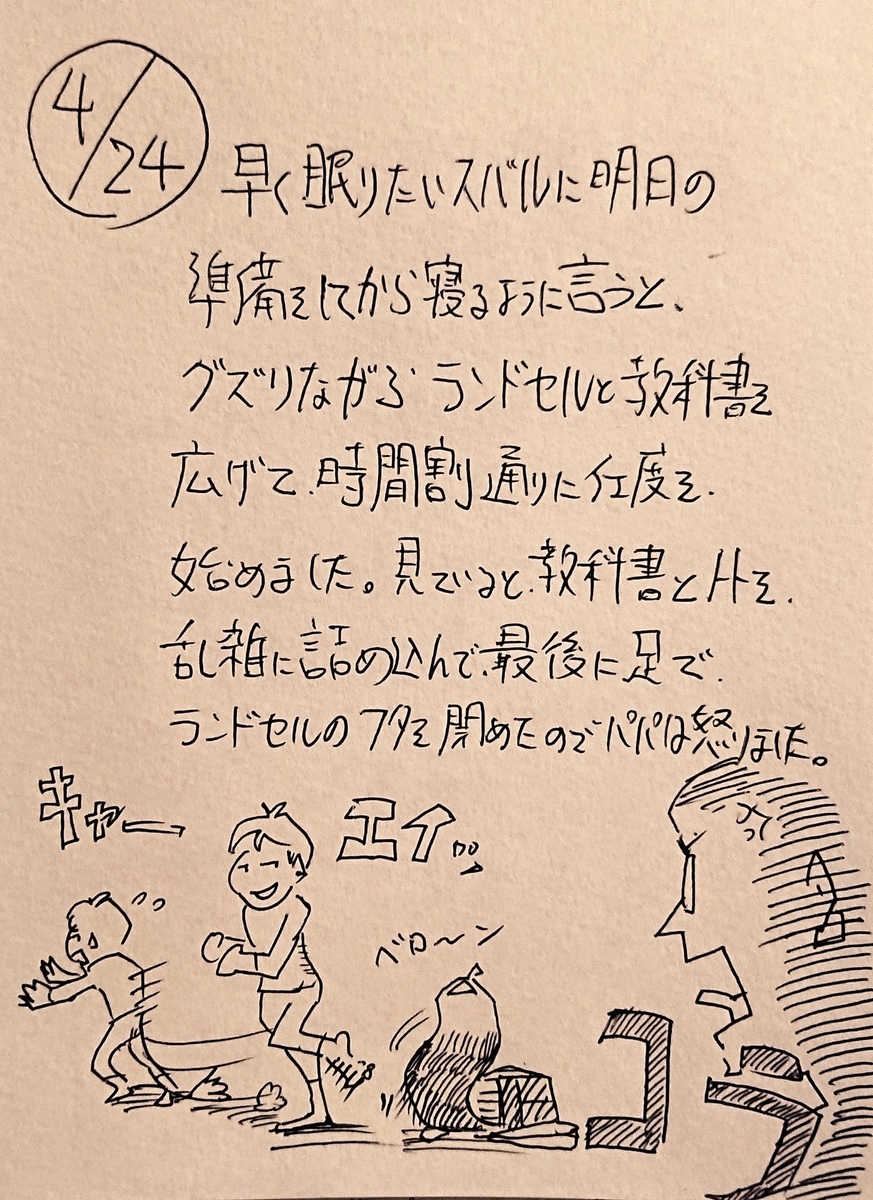 4/24
早く眠りたいスバルに明日の
準備をしてから寝るように言うと、
グズりながらランドセルと教科書を
広げて、時間割通りに仕度を、
始めました。見ていると、教科書とノートを、
乱雑に詰め込んで、最後に足で、
ランドセルのフタを閉めたのでパパは怒りました。
キャー
エイッ
ベロ〜ン
コラ